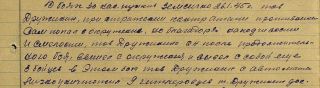 В боях за нас. пункт Земеника 26.1.45г. тов
Дружинин, при отражении контратаки противника
Сам попал в окружение, но благодаря находчивости
и смелости, тов Дружинин после продолжительного
боя, вышел с окружения и вывел с собой еще
бойцов. В этом бою тов Дружинин с автомата
лично уничтожил 9 гитлеровцев т. Дружинин дос